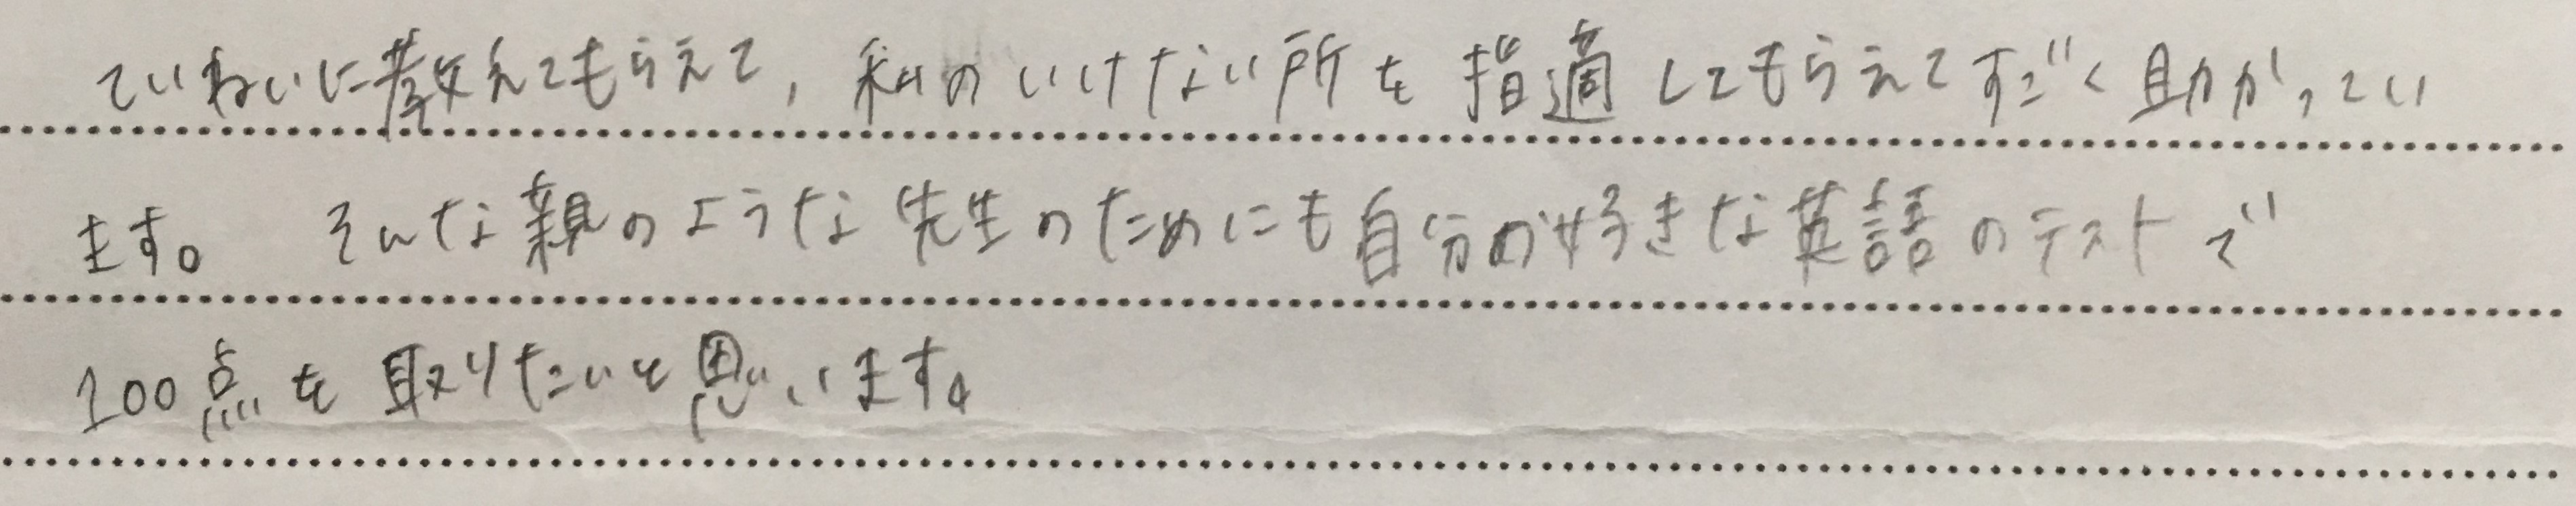 ていねいに教えてもらえて、私のいけない所を指適してもらえてすごく助かってい
ます。 そんな親のような先生のためにも自分の好きな英語のテストで
100点を取りたいと思います。